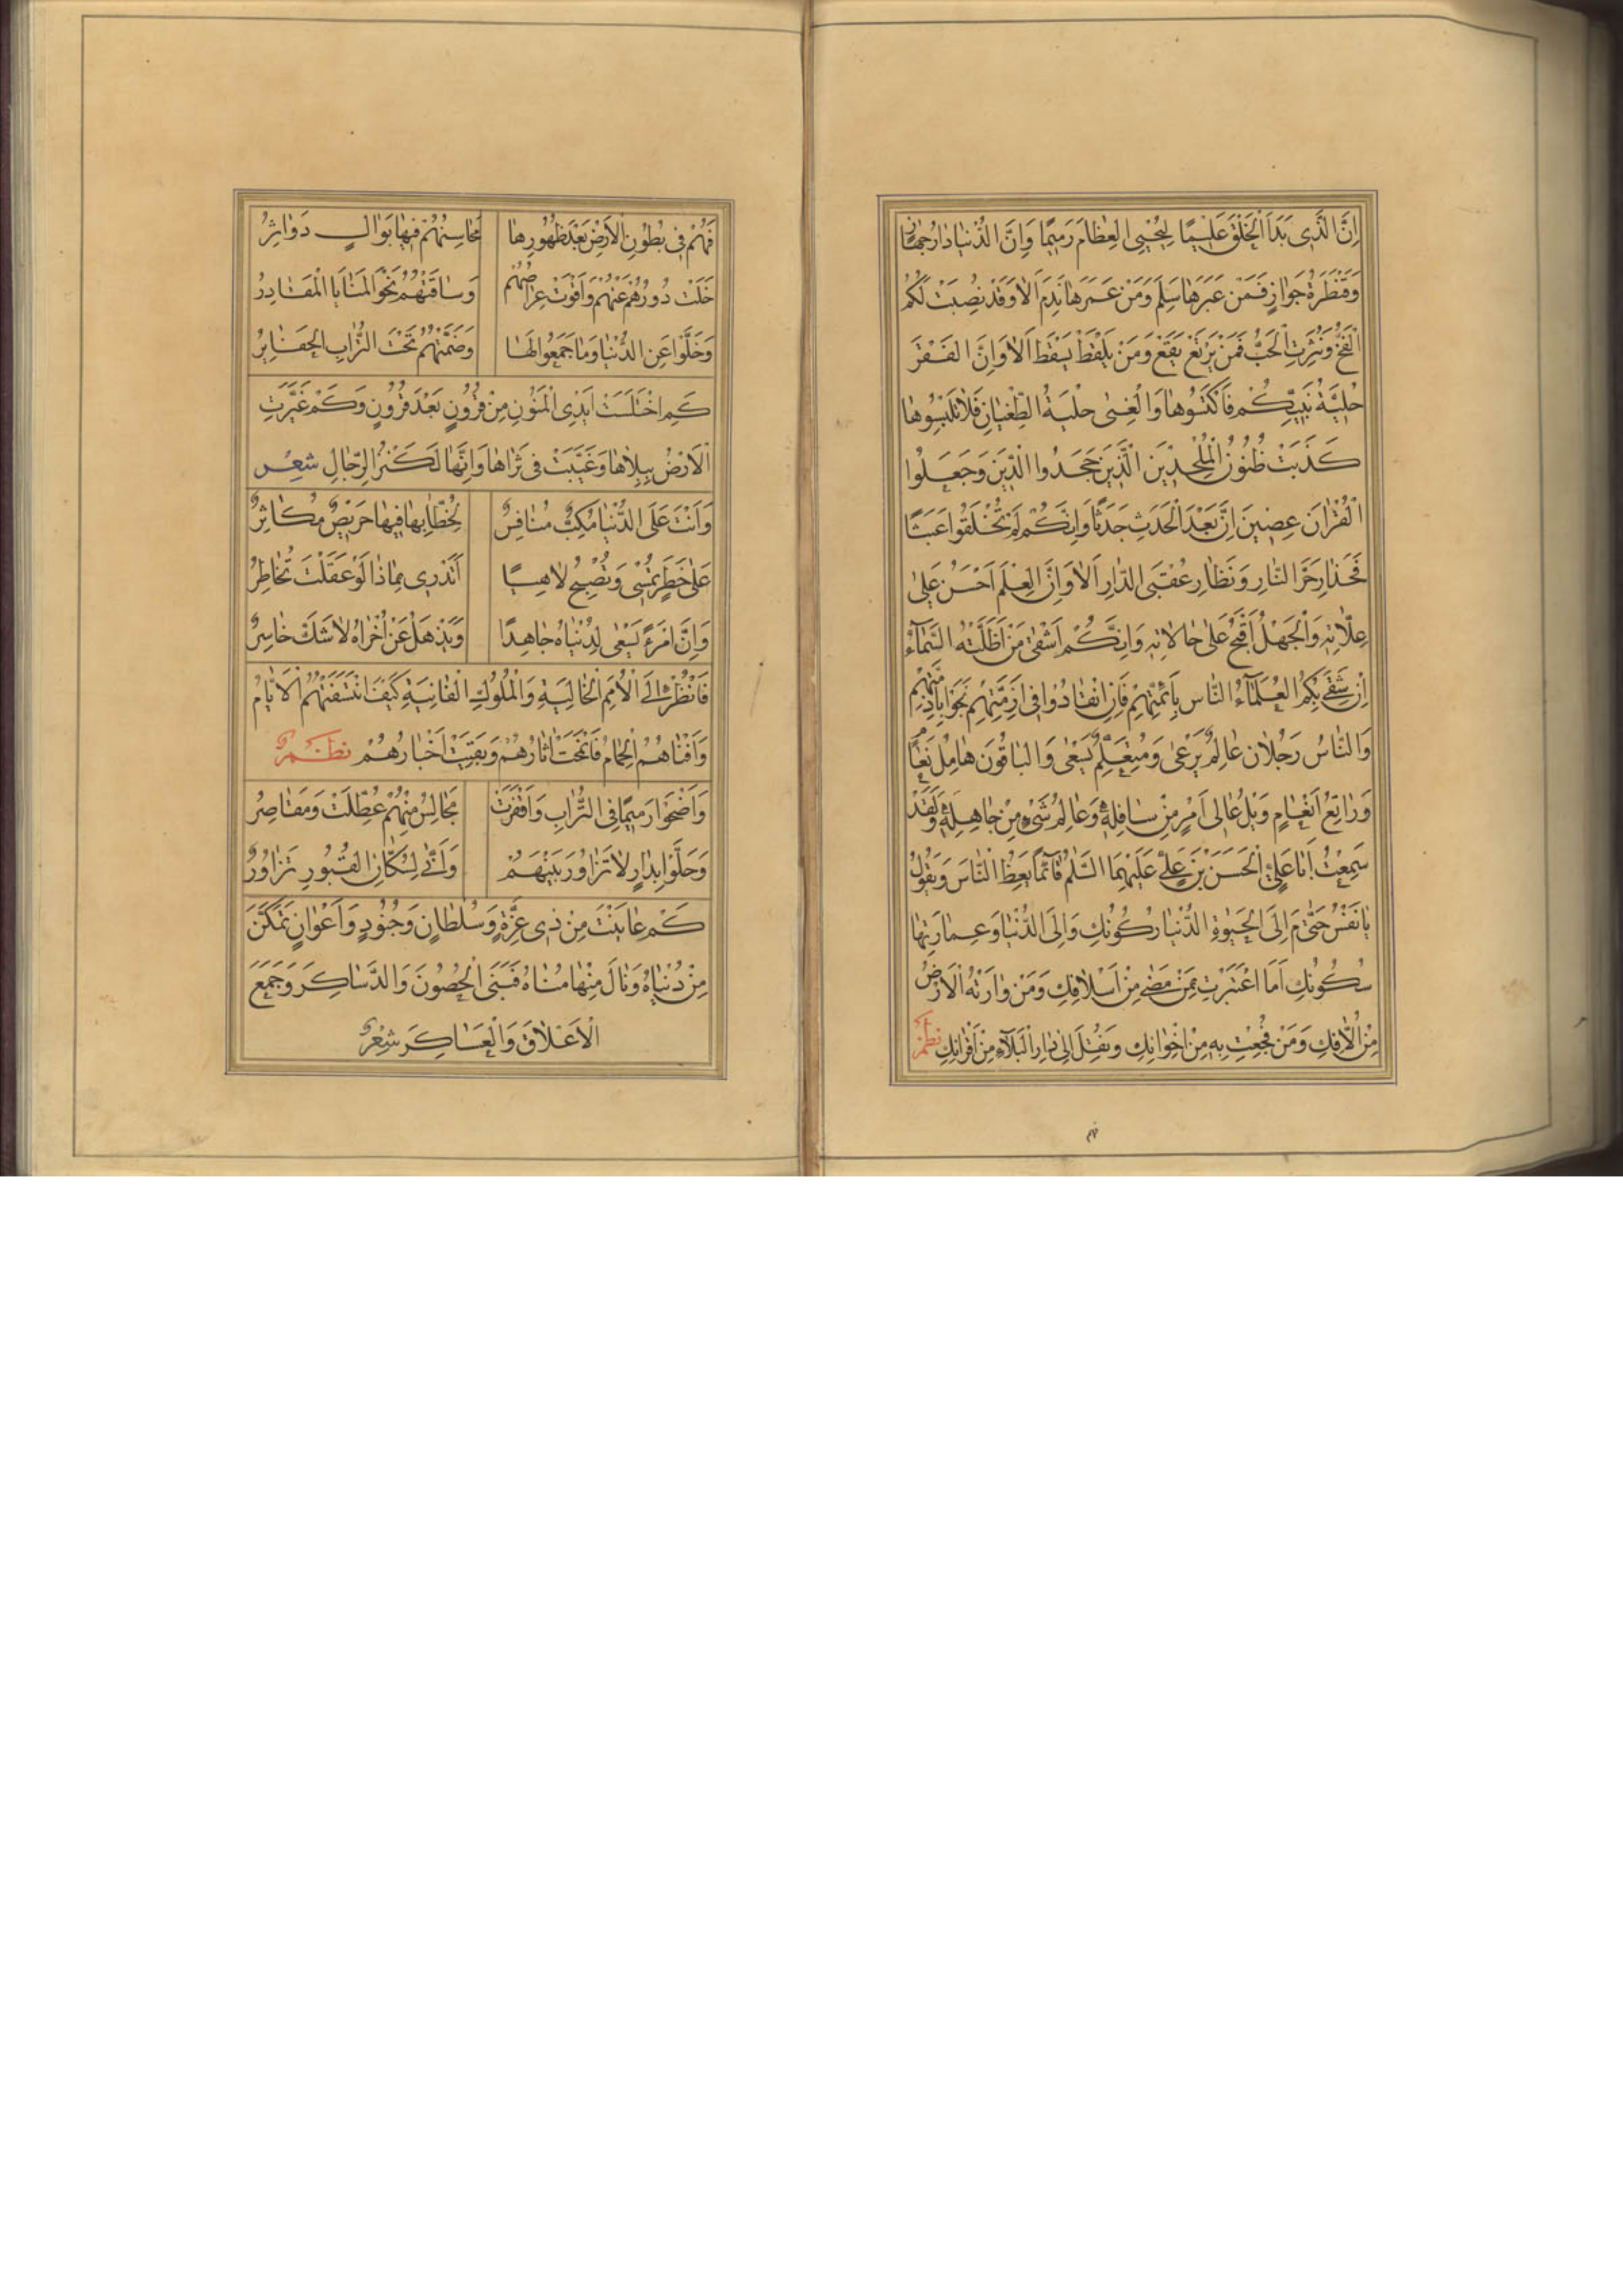 اِنَّ الَّذِى بَدَاَ الْخَلْقَ عَلِيمًا لِيُحْيِىَ الْعِظَامَ رَمِيمًا وَاِنَّ الدُّنْيَا دَارُ جَهَازٍ
وَقَنْطَرَةُ جَوَازٍ فَمَنْ عَبَرَهَا سَلِمَ وَمَنْ عَمَرَهَا نَدِمَ اَلَا وَقَدْ نُصِبَتْ لَكُمُ
الْفَخُّ وَنُثِرَتِ الْحَبُّ فَمَنْ يَرْتَعْ يَقَعْ وَمَنْ يَلْقُطْ يَسْقُطْ اَلَا وَاِنَّ الْفَقْرَ
حُلْيَةُ نَبِيِّكُمْ فَاكْتَسُوهَا وَالْغِنٰى حُلْيَةُ الطُّغْيَانِ فَلَا تَلْبَسُوهَا
كَذَبَتْ ظُنُونُ الْمُلْحِدِينَ الَّذِينَ جَحَدُوا الدِّينَ وَجَعَلُوا
الْقُرْاٰنَ عِضِينَ اِنَّ بَعْدَ الْحَدَثِ جَدَثًا وَاِنَّكُمْ لَمْ تُخْلَقُوا عَبَثًا
فَحَذَارِ حَرَّ النَّارِ وَنَظَارِ عُقْبَى الدَّارِ اَلَا وَاِنَّ الْعِلْمَ اَحْسَنُ عَلٰى
عِلَّاتِهِ وَالْجَهْلُ اَقْبَحُ عَلٰى حَالَاتِهِ وَاِنَّكُمْ اَشْقٰى مَنْ اَظَلَّتْهُ السَّمَاءُ
اِنْ شَقِىَ بِكُمُ الْعُلَمَاءُ النَّاسُ بِاَئِمَّتِهِمْ فَاِنِ انْقَادُوا فِى اَزِمَّتِهِمْ نَجَوْا بِاَذِمَّتِهِمْ
وَالنَّاسُ رَجُلَانِ عَالِمٌ يَرْعٰى وَمُتَعَلِّمٌ يَسْعٰى وَالْبَاقُونَ هَامِلُ نَعَامٍ
وَرَاتِعُ اَنْعَامٍ وَيْلُ عَالِى اَمْرٍ مِنْ سَافِلِهِ وَعَالِمِ شَىْءٍ مِنْ جَاهِلِهِ وَلَقَدْ
سَمِعْتُ اَنَّ عَلِىَّ بْنَ الْحُسَيْنِ بْنِ عَلِىٍّ عَلَيْهِمَا السَّلٰمُ قَائِمًا يَعِظُ النَّاسَ وَيَقُولُ
يَا نَفْسُ حَتَّى مَ اِلَى الْحَيٰوةِ الدُّنْيَا رُكُونُكِ وَاِلَى الدُّنْيَا وَعِمَارَتِهَا
سُكُونُكِ اَمَا اعْتَبَرْتِ بِمَنْ مَضٰى مِنْ اَسْلَافِكِ وَمَنْ وَارَتْهُ الْاَرْضُ
مِنْ اُلَّافِكِ وَمَنْ فُجِعْتِ بِهِ مِنْ اِخْوَانِكِ وَنُقِلَ اِلٰى دَارِ الْبَلَاءِ مِنْ اَقْرَانِكِ نظم
فَهُمْ فِى بُطُونِ الْاَرْضِ بَعْدَ ظُهُورِهَا مَحَاسِنُهُمْ فِيهَا بَوَالٍ دَوَاثِرُ
خَلَتْ دُورُهُمْ عَنْهُمْ وَاَقْوَتْ عِرَاصُهُمْ وَسَاقَتْهُمُ نَحْوَ الْمَنَايَا الْمَقَادِرُ
وَخَلَّوْا عَنِ الدُّنْيَا وَمَا جَمَعُوا لَهَا وَضَمَّتْهُمُ تَحْتَ التُّرَابِ الْحَفَايِرُ
كَمِ اخْتَلَسَتْ اَيْدِى الْمَنُونِ مِنْ قُرُونٍ بَعْدَ قُرُونٍ وَكَمْ غَيَّرَتِ
الْاَرْضُ بِبِلَاهَا وَغَيَّبَتْ فِى ثَرَاهَا وَاِنَّهَا لَكَنْزُ الرِّجَالِ شعر
وَاَنْتَ عَلَى الدُّنْيَا مُكِبٌّ مُنَافِسٌ لِخُطَّابِهَا فِيهَا حَرِيصٌ مُكَاثِرٌ
عَلٰى خَطَرٍ تُمْسِى وَتُصْبِحُ لَاهِيًا اَتَدْرِى بِمَاذَا لَوْ عَقَلْتَ تُخَاطِرُ
وَاِنَّ امْرَءً يَسْعٰى لِدُنْيَاهُ جَاهِدًا وَيَذْهَلُ عَنْ اُخْرَاهُ لَا شَكَّ خَاسِرٌ
فَانْظُرْ اِلَى الْاُمَمِ الْخَالِيَةِ وَالْمُلُوكِ الْفَانِيَةِ كَيْفَ انْتَسَفَتْهُمُ الْاَيَّامُ
وَاَفْنَاهُمُ الْحِمَامُ فَانْمَحَتْ اٰثَارُهُمْ وَبَقِيَتْ اَخْبَارُهُمْ نظم
وَاَضْحَوْا رَمِيمًا فِى التُّرَابِ وَاَقْفَرَتْ مَجَالِسُ مِنْهُمْ عُطِّلَتْ وَمَقَاصِرُ
وَحَلُّوْا بِدَارٍ لَا تَزَاوُرَ بَيْنَهُمْ وَاَنّٰى لِسُكَّانِ الْقُبُورِ تَزَاوُرٌ
كَمْ عَايَنْتَ مِنْ ذِى عِزَّةٍ وَسُلْطَانٍ وَجُنُودٍ وَاَعْوَانٍ تَمَكَّنَ
مِنْ دُنْيَاهُ وَنَالَ مِنْهَا مُنَاهُ فَبَنَى الْحُصُونَ وَالدَّسَاكِرَ وَجَمَعَ
الْاَعْلَاقَ وَالْعَسَاكِرَ شعر